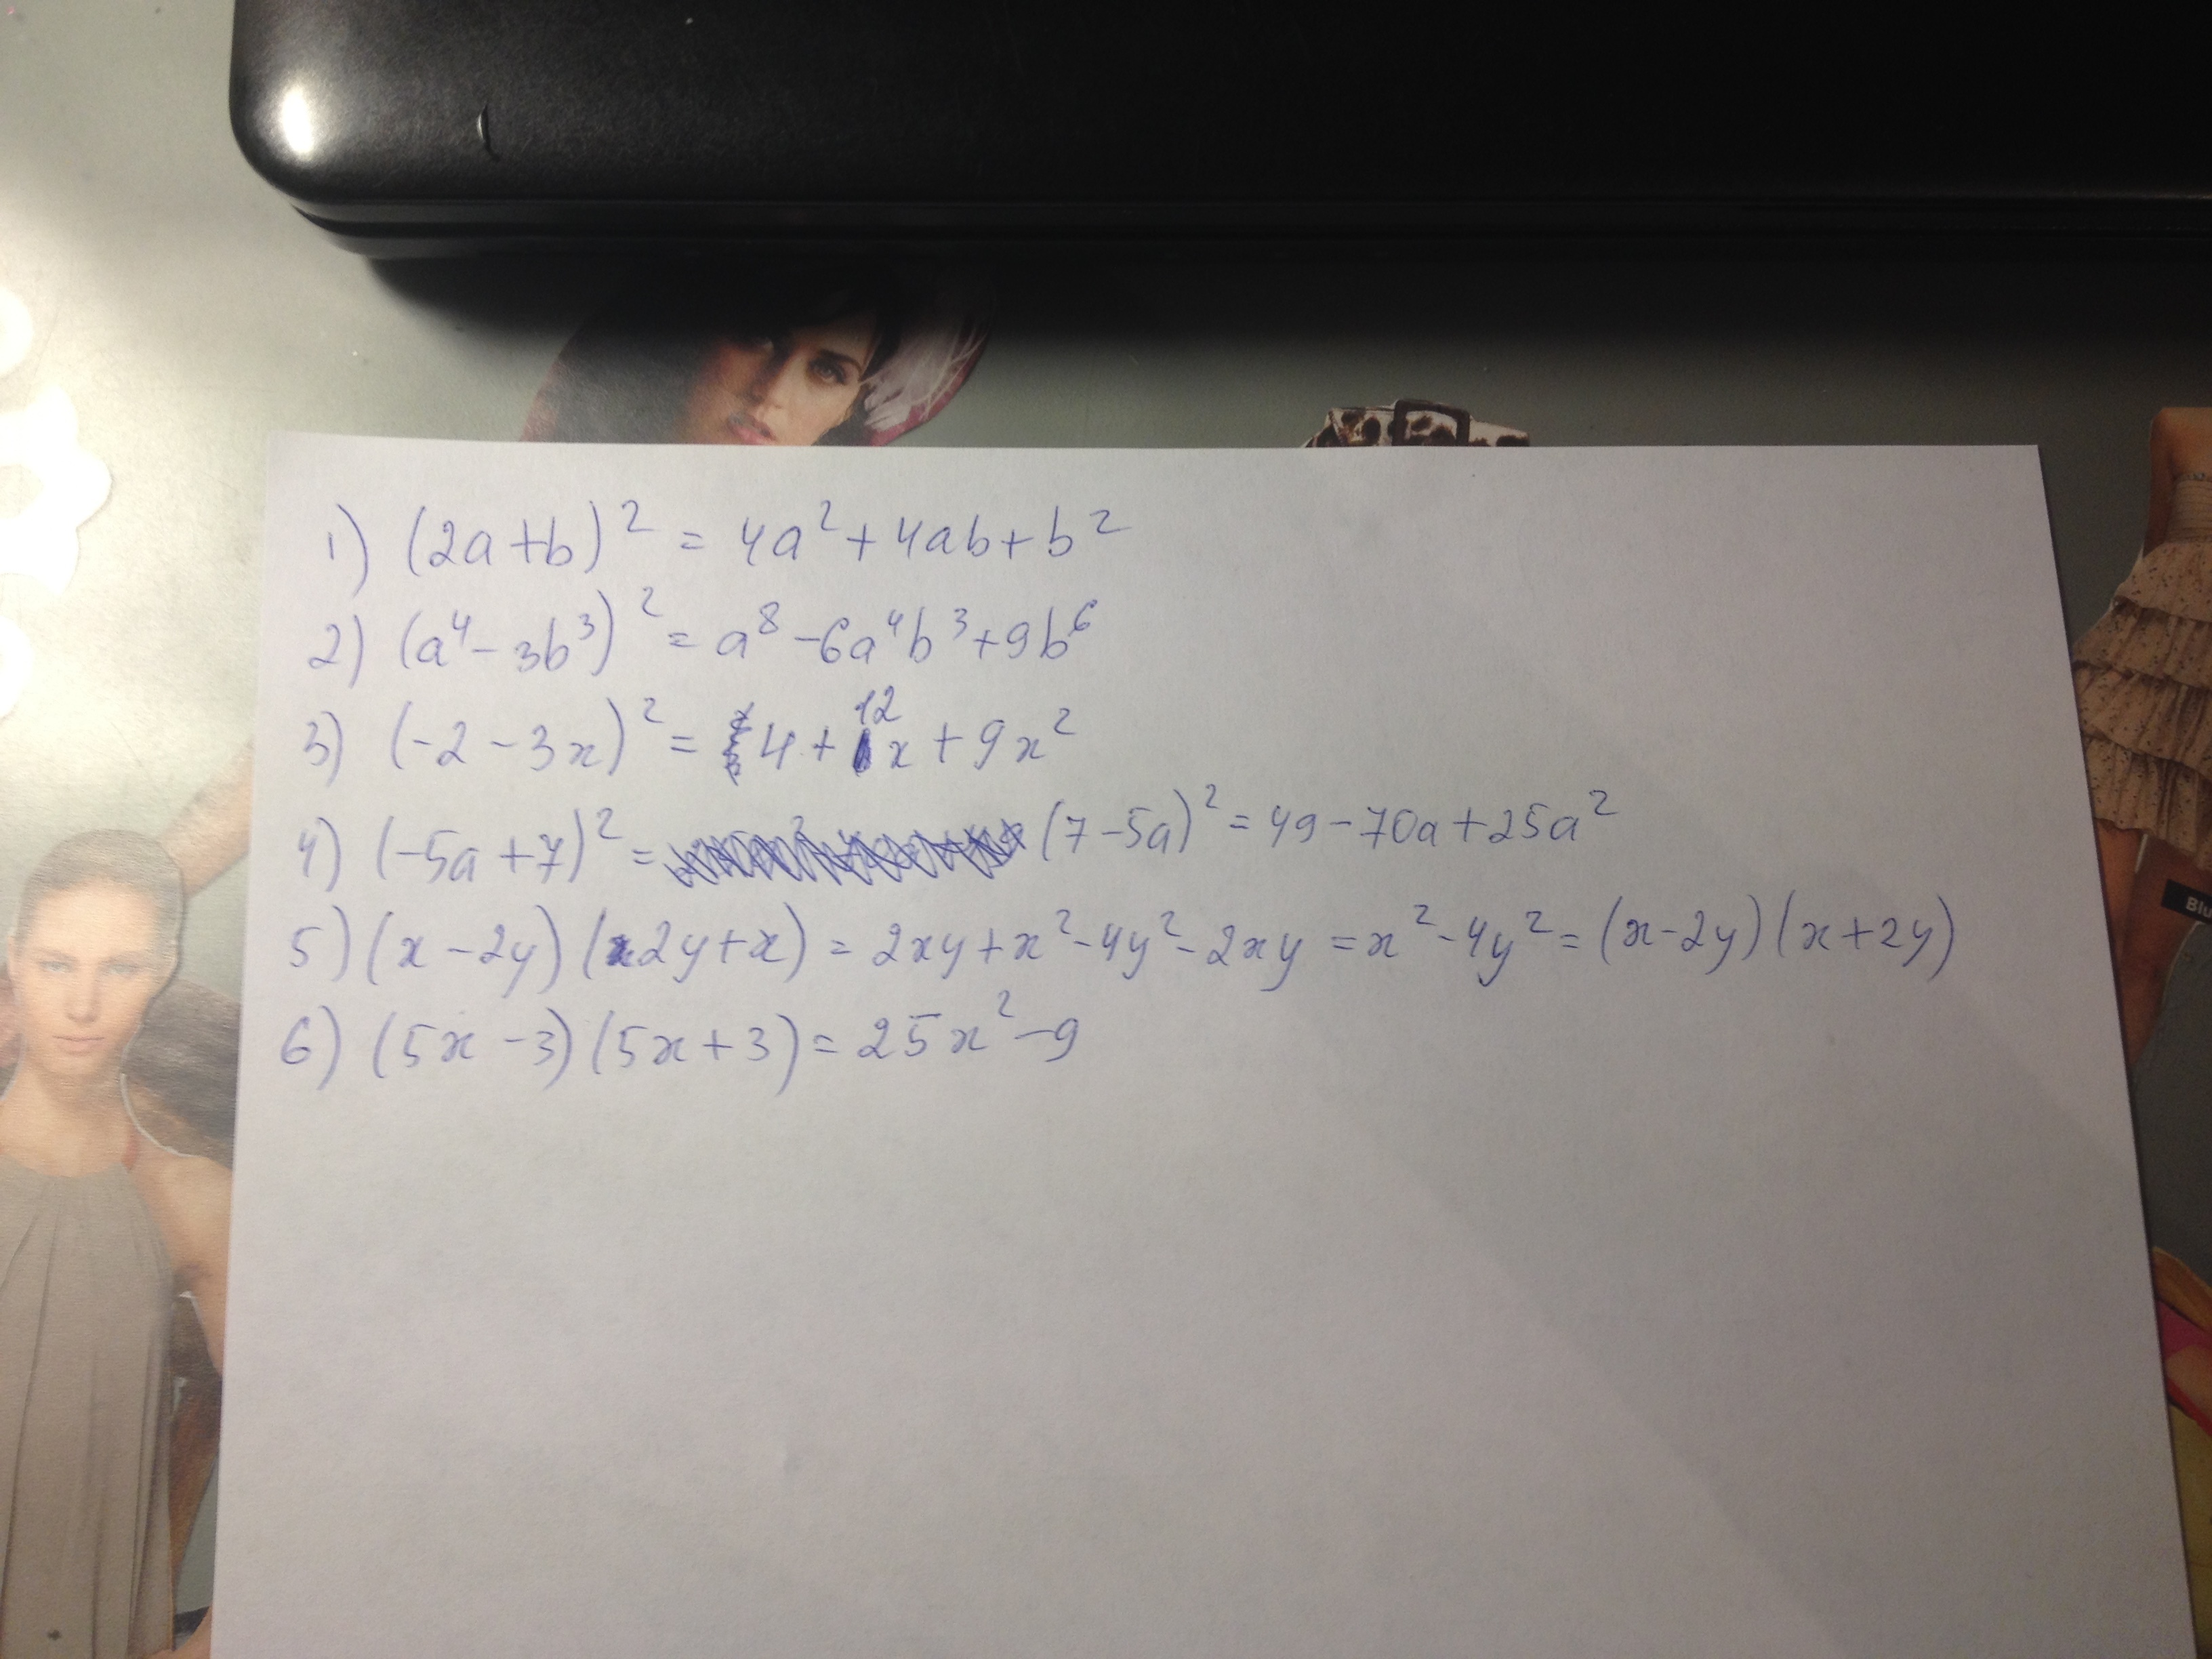 1) (2a+b)² = 4a²+4ab+b²
2) (a⁴-3b³)² = a⁸-6a⁴b³+9b⁶
3) (-2-3x)² = 4+12x+9x²
4) (-5a+7)² = (7-5a)² = 49-70a+25a²
5) (x-2y)(2y+x) = 2xy+x²-4y²-2xy = x²-4y² = (x-2y)(x+2y)
6) (5x-3)(5x+3) = 25x²-9